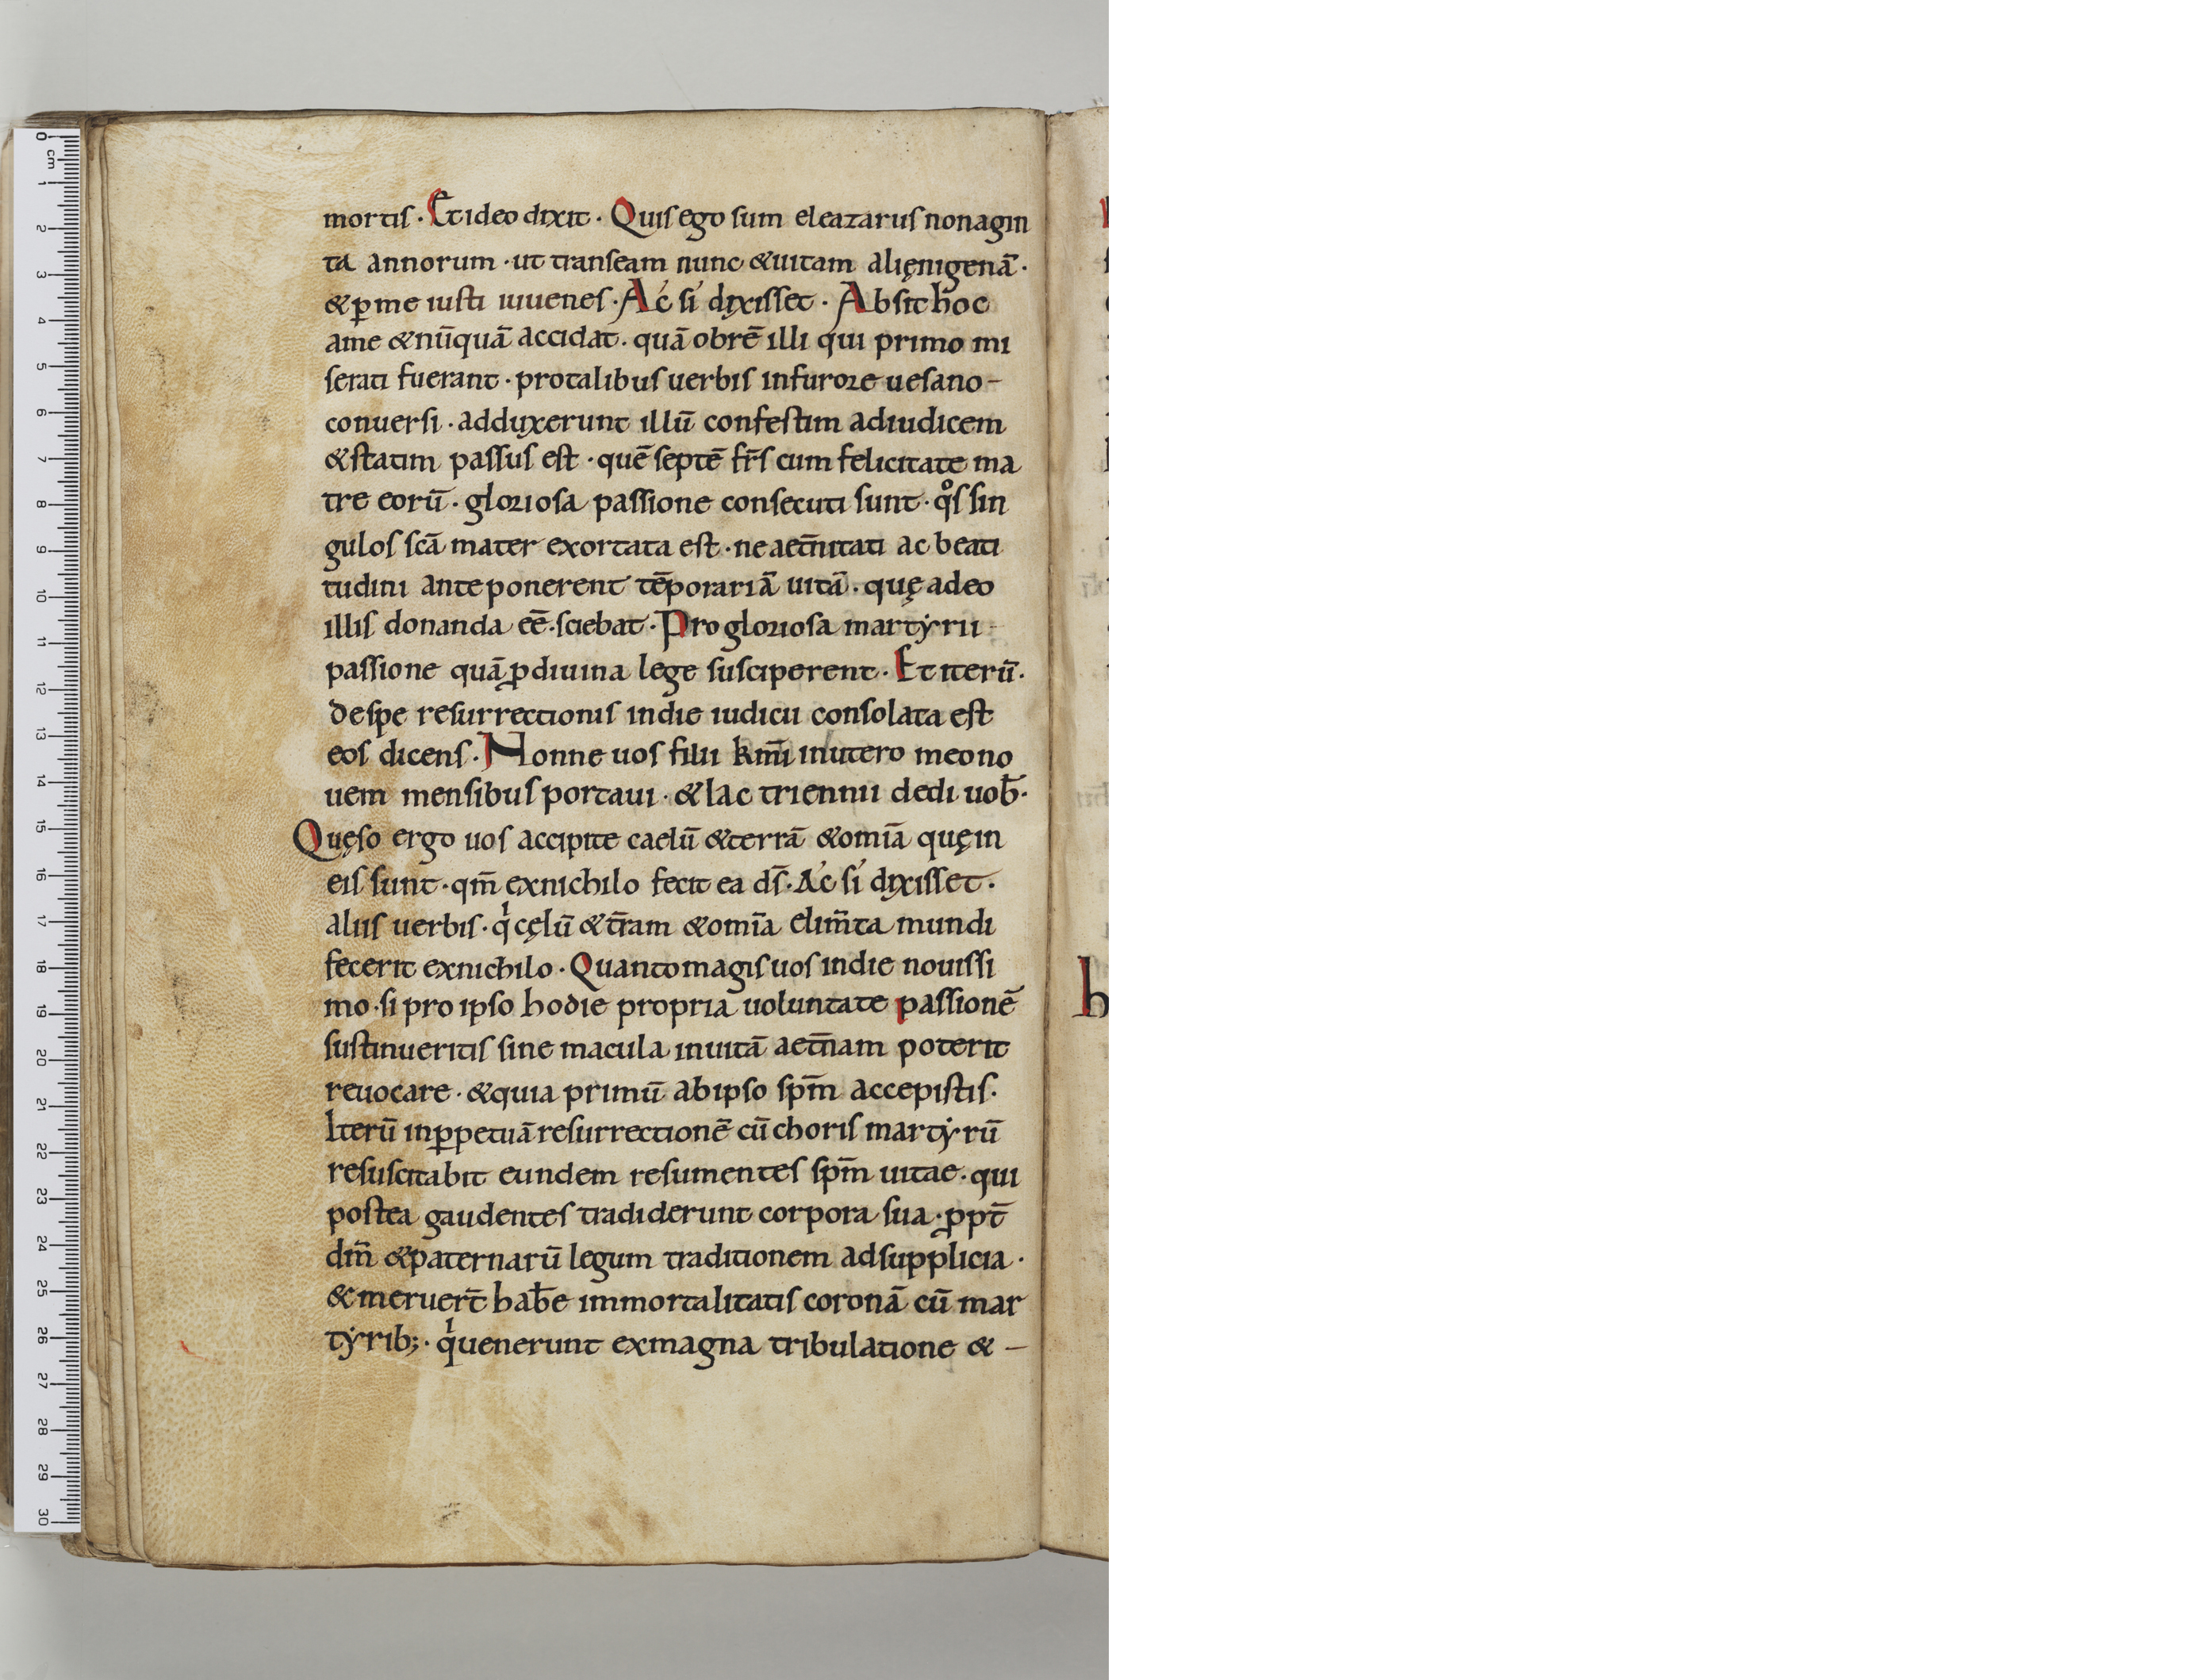 mortis · Et ideo dixit · Quis ego sum eleazarus nonagin
ta annorum · ut transeam nunc & uitam alięnigenā ·
& ꝑ me iusti iuuenes · Ac si dixisset · Absit hoc
a me & nūquā accidat · quā ob rē illi qui primo mi
serati fuerant · pro talibus uerbis in furore uesano -
conuersi · adduxerunt illū confestim ad iudicem
& statim passus est · quē septē fr̄s cum felicitate ma
tre eorū · gloriosa passione consecuti sunt · qͦs sin
gulos scā mater exortata est · ne aet̄nitati ac beati
tudini anteponerent tēporariā uitā · quę a deo
illis donanda eē · sciebat · Pro gloriosa martẏrii -
passione quā ꝓ diuina lege susciperent · Et iterū ·
de spe resurrectionis in die iudicii consolata est
eos dicens · Nonne uos filii km̄i in utero meo no
uem mensibus portaui · & lac triennii dedi uob̄ ·
Quęso ergo uos accipite caelū & terrā & omīa quę in
eis sunt · qm̄ ex nichilo fecit ea ds̄ · Ac si dixisset ·
aliis uerbis · qⁱ cęlū & t̄ram & omīa elim̄ta mundi
fecerit ex nichilo · Quanto magis uos in die nouissi
mo · si pro ipso hodie propria uoluntate passionē
sustinueritis sine macula in uitā aet̄nam poterit
reuocare · & quia primū ab ipso spm̄ accepistis ·
Iterū in ꝑpetuā resurrectionē cū choris martẏrū
resuscitabit eundem resumentes spm̄ uitae · qui
postea gaudentes tradiderunt corpora sua · ꝓpt̄
dm̄ & paternarū legum traditionem ad supplicia ·
& meruert̄ hab̄e immortalitatis coronā cū mar
tẏrib; · qⁱ uenerunt ex magna tribulatione & -